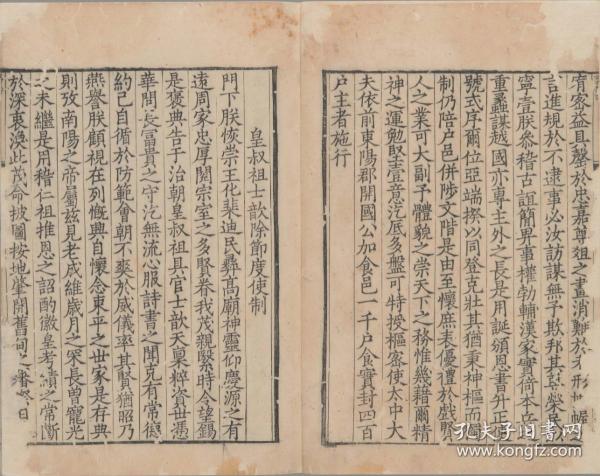 宥家益具罄於忠嘉尊俎之畫消難於
言進規於不逮事必汝訪謀無予欺邦其
寧壹朕參稽古誼簡畀事權勃輔漢家實倚本兵
重蠡謀越國亦專主外之長是用誕頒恩書升正
號式序爾位亞端揆以同登克壯其猶秉神樞而
制仍陪戶邑併陟文階是由至懷庶表優禮於戲賢
人之業可大副予體貌之崇天下之務惟幾藉爾精
神之運勳堅壹意汔底多盤可特授樞密使太中大
夫依前東陽郡開國公加食邑一千戶食實封四百
戶主者施行
皇叔祖士歆除節度使制
門下朕恢崇王化棐迪民彝高廟神靈仰慶源之有
遠周家忠厚閱宗室之多賢眷我茂親繄時令望錫
是褒典告于治朝皇叔祖具官士歆天稟粹資世馮
華閥長富貴之守汔無流心服詩書之聞克有常德
約己自循於防範會朝不爽於威儀率其贊猶昭乃
燕譽朕顧視在列慨典自懷念東平之世家是存典
則攷南陽之帝屬茲見老成維歲月之罙長曾寵光
之未繼是用稽仁祖推恩之詔酌徽皇考績之常斷
於深衷渙此茂命披圖按地肇開舊
孔夫子旧书网
www.kongfz.com